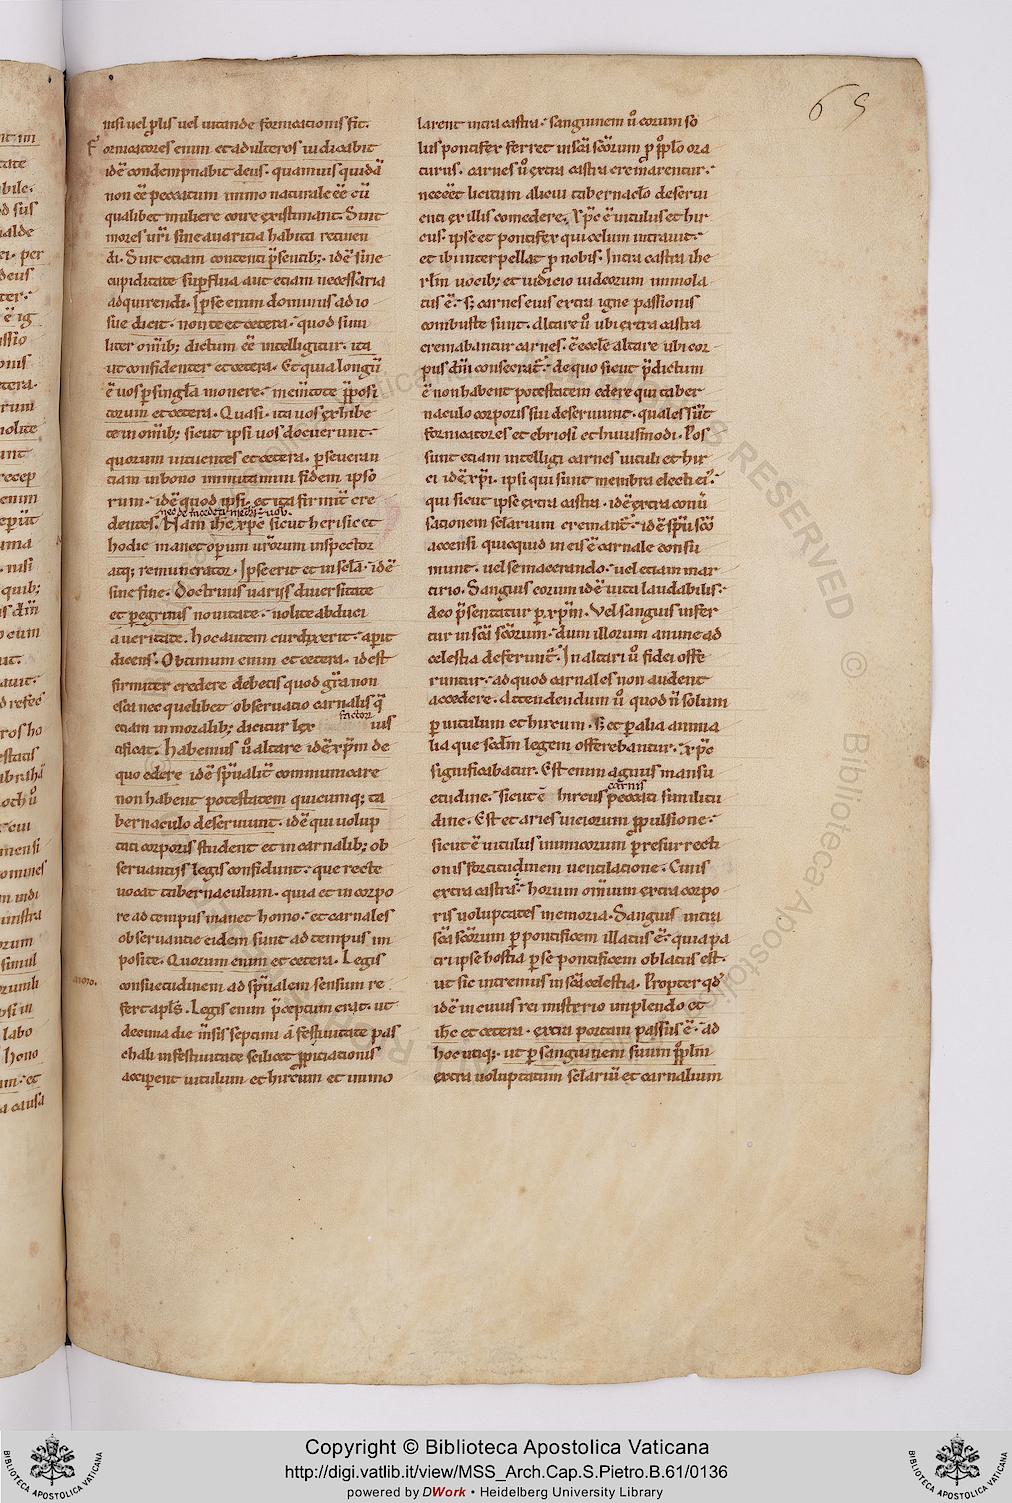 65
nisi uel ꝓlis uel uitande fornicationis fit.
Fornicatores enim et adulteros iudicabit
idē condempnabit deus. quamuis quidā
non eē peccatum immo naturale eē cū
qualibet muliere coire existimant. Sint
mores uri sine auaritia habita retinen
di. Sint etiam contenti p̄sentib;. idē sine
cupiditate supflua aut etiam necessaria
adquirendi. Ipse enim dominus ad io
sue dicit. non te et cetera. quod simi
liter omīb; dictum eē intelligitur. ita
ut confidenter et cetera. Et quia longū
ē uos p singla monere. memtote ꝓposi
torum et cetera. Quasi. ita uos exhibe
te in omīb; sicut ipsi uos docuerunt.
quorum intuentes et cetera. pseueran
tiam in bono imitamini fidem ipso
rum. idē quod ipsi. et ita firmit cre
dentes. Nam ihe xpc sicut heri sic et
hodie manet operum urorum inspector
atq; remunerator. Ipse erit et in sela. idē
sine fine. Doctrinis uariis diuersitate
et pegrinis nouitate. nolite abduci
a ueritate. hoc autem cur dixerit. apit
dicens. Obtimum enim et cetera. id est
firmiter credere debetis quod gra non
esca nec quelibet obseruatio carnalis q̄
etiam in moralib; dicitur lex factor ius
tificat. habemus ū altare idē xpm de
quo edere idē spualit communicare
non habent potestatem quicumq; ta
bernaculo deseruiunt. idē qui uolup
tati corporis student et in carnalib; ob
seruantiis legis confidunt. que recte
uocat tabernaculum. quia et in corpo
re ad tempus manet homo. et carnales
obseruantie eidem sunt ad tempus im
posite. Quorum enim et cetera. Legis
consuetudinem ad spualem sensum re
fert apls. Legis enim p̄ceptum erat. ut
decima die m̄sis septimi a festiuitate pas
chali in festiuitate scilicet ꝓpiciationis
acciperent uitulum et hircum et immo
larent intra castra. sanguinem ū eorum so
lus pontifex ferret in scā scōrum ꝓ pplo ora
turus. carnes ū extra castra cremarentur.
nec eēt licitum alicui tabernaclo deserui
enti ex illis comedere. Xpc ē uitulus et hir
cus. ipse et pontifex qui celum intrauit.
et ibi interpellat ꝓ nobis. Intra castra ihe
rlm uocib; et iudicio iudeorum immola
tus ē. s; carnes eius extra igne passionis
combuste sunt. Altare ū ubi extra castra
cremabantur carnes. ē eccle altare ubi cor
pus dni consecrat̄. de quo sicut p̄dictum
ē non habent potestatem edere qui taber
naculo corporis sui deseruiunt. quales sūt
fornicatores et ebriosi et huiusmodi. Pos
sunt etiam intelligi carnes uituli et hir
ci idē xpi. ipsi qui sunt membra electi ei.
qui sicut ipse extra castra. idē extra conū
sationem selarium cremant̄. idē spū scō
accensi quicquid in eis ē carnale consu
munt. uel se macerando. uel etiam mar
tirio. Sanguis eorum idē uita laudabilis.
deo p̄sentatur p xpm. Vel sanguis infer
tur in scā scōrum. dum illorum anime ad
celestia deferunt̄. In altari ū fidei offe
runtur. ad quod carnales non audent
accedere. Attendendum ū quod n̄ solum
p uitulum et hircum. s; et p alia anima
lia que scdm legem offerebantur. xpc
significabatur. Est enim agnus mansu
etudine. sicut ē hircus carnis peccati similitu
dine. Est et aries uiciorum ꝓpulsione.
sicut ē uitulus inimicorum p resurrecti
onis fortitudinem uentilatione. Cuius
extra castra. horum omium extra corpo
ris uoluptates memoria. Sanguis intra
scā scōrum p pontificem illatus ē. quia pa
tri ipse hostia p se pontificem oblatus est.
ut sic intremus in scā celestia. Propter qd
idē in cuius rei misterio implendo et
ihc et cetera. extra portam passus ē. ad
hoc utiq;. ut p sanguinem suum pplm
extra uoluptatum selariū et carnalium
Copyright © Biblioteca Apostolica Vaticana
http://digi.vatlib.it/view/MSS_Arch.Cap.S.Pietro.B.61/0136
powered by DWork • Heidelberg University Library
BIBLIOTECA APOSTOLICA VATICANA
BIBLIOTECA APOSTOLICA VATICANA